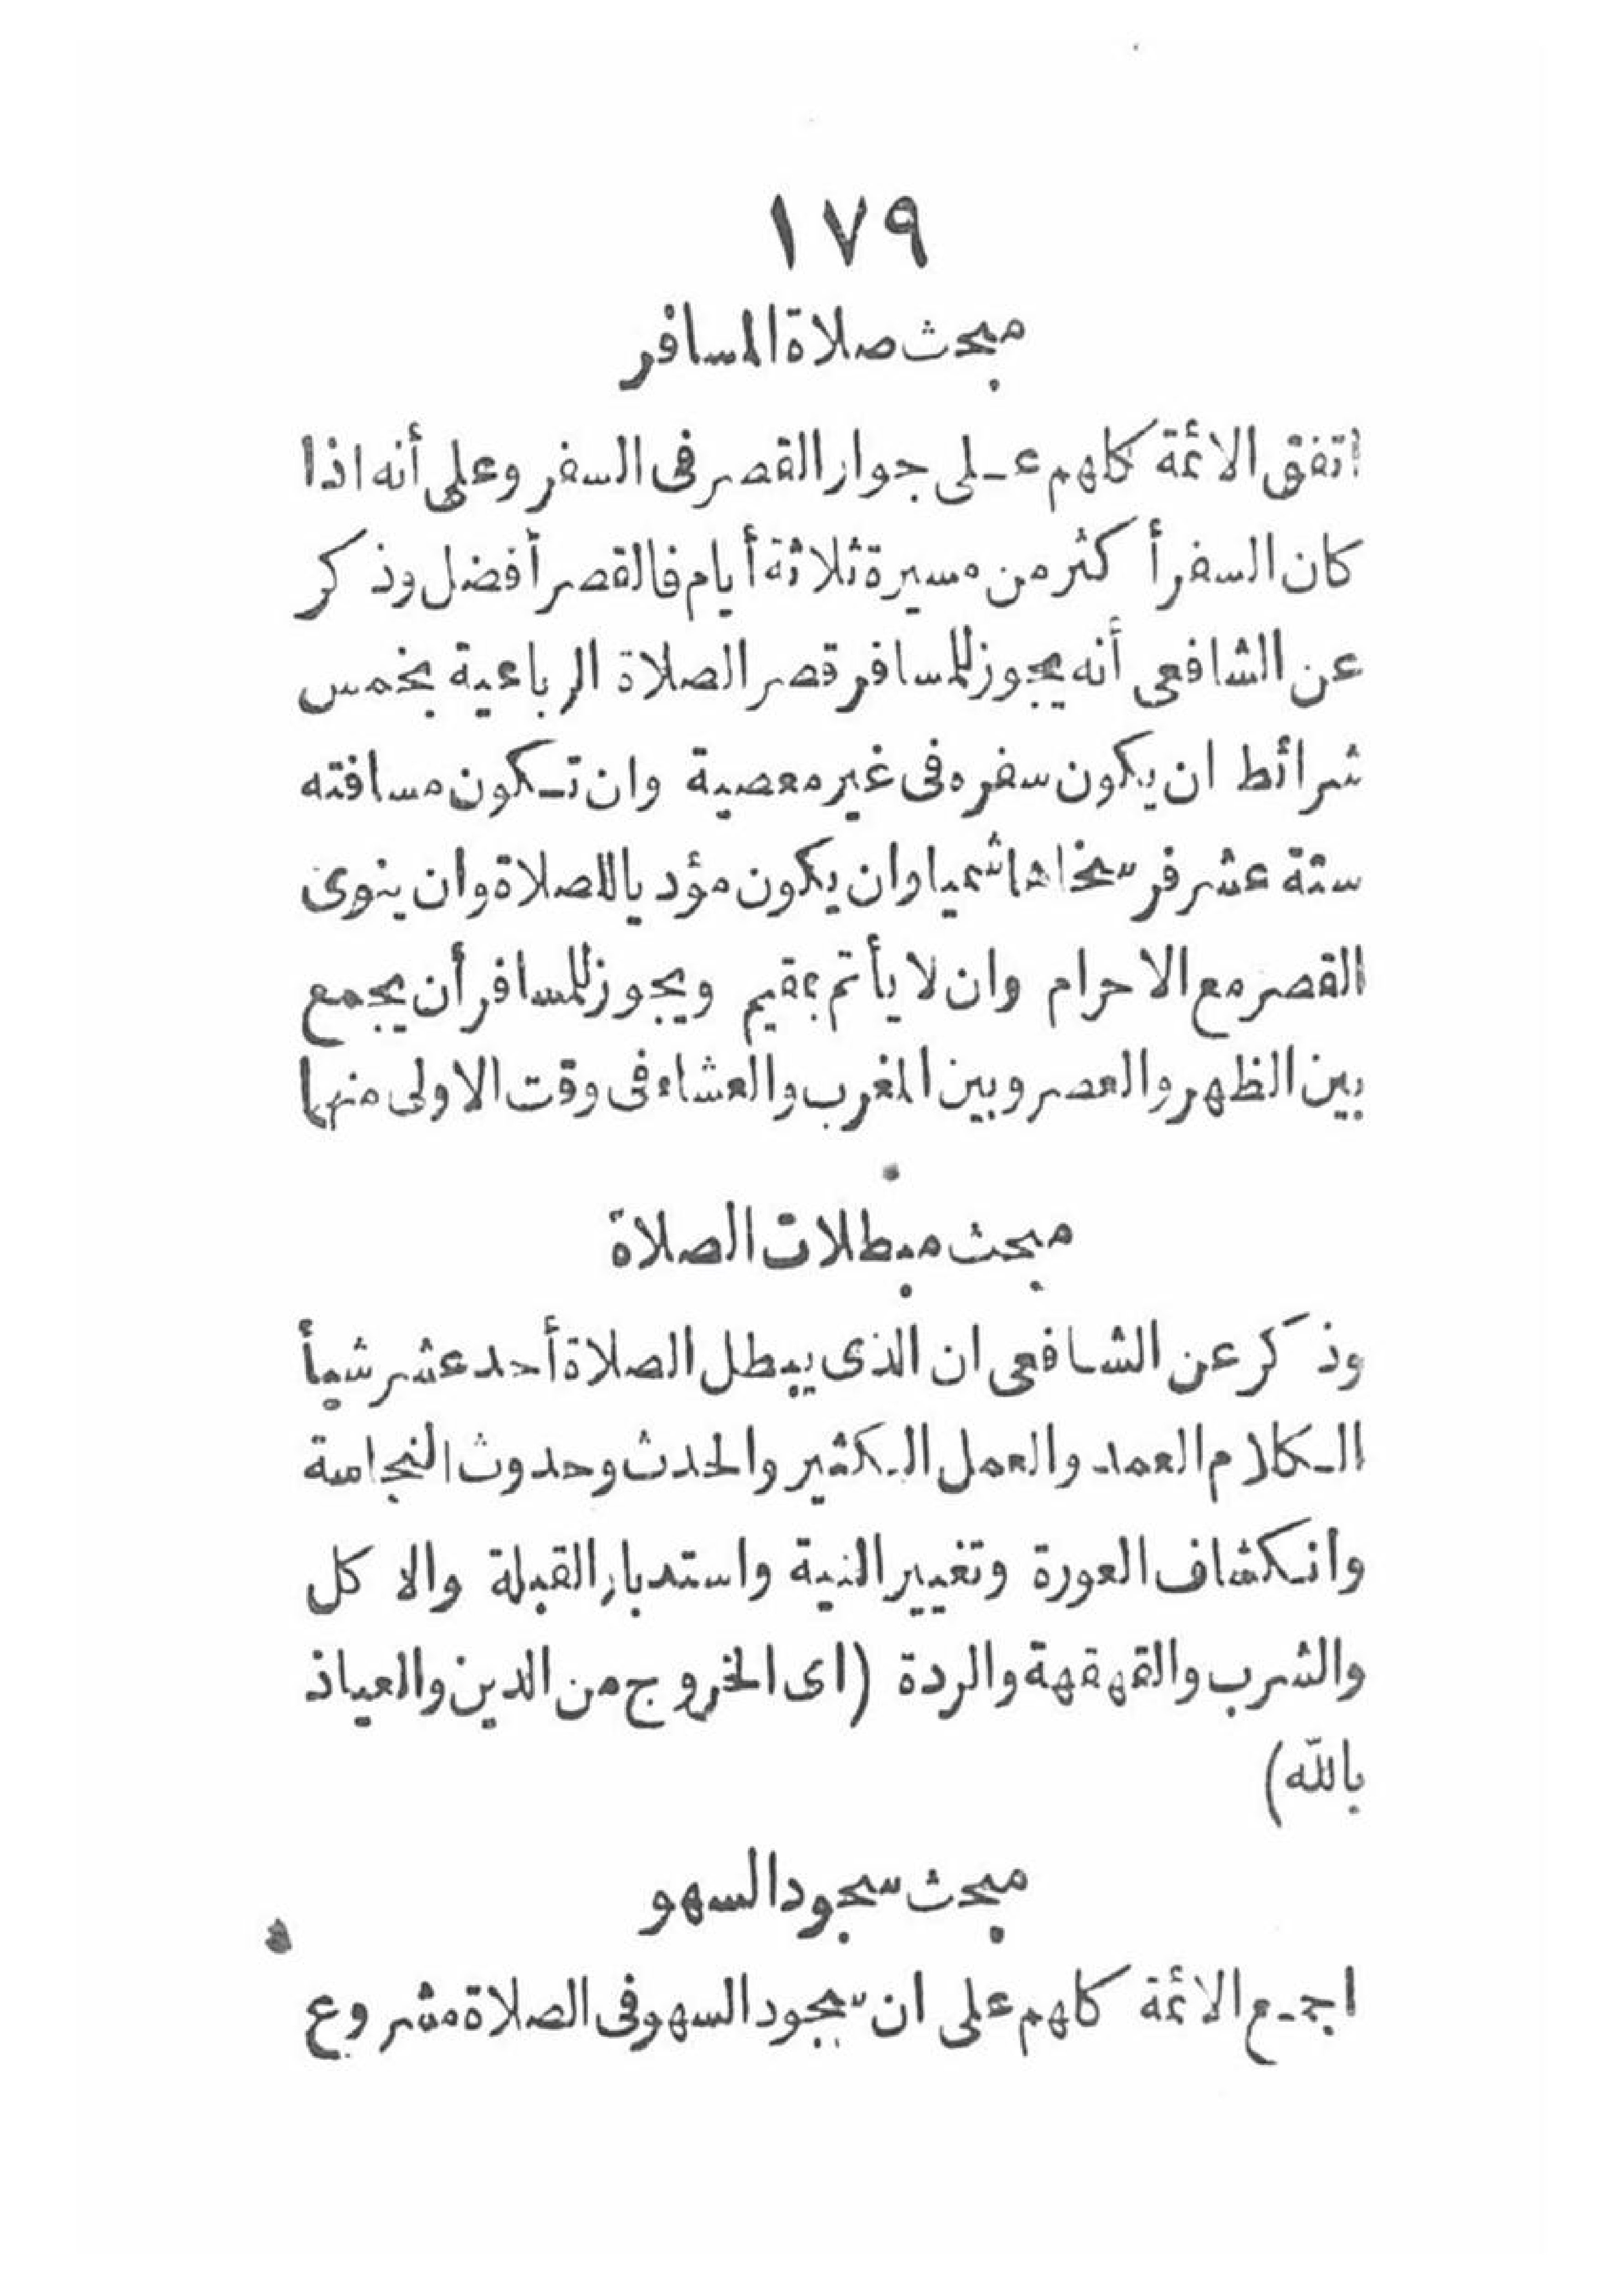 ١٧٩
مبحث صلاة المسافر
اتفق الائمة كلهم على جواز القصر فى السفر وعلى أنه اذا
كان السفر أكثر من مسيرة ثلاثة أيام فالقصر أفضل وذكر
عن الشافعى أنه يجوز للمسافر قصر الصلاة الرباعية بخمس
شرائط ان يكون سفره فى غير معصية وان تكون مسافته
ستة عشر فرسخا هاشميا وان يكون مؤديا للصلاة وان ينوى
القصر مع الاحرام وان لا يأتم بمقيم ويجوز للمسافر أن يجمع
بين الظهر والعصر وبين المغرب والعشاء فى وقت الاولى منها
مبحث مبطلات الصلاة
وذكر عن الشافعى ان الذى يبطل الصلاة أحد عشر شيأ
الكلام العمد والعمل الكثير والحدث وحدوث النجاسة
وانكشاف العورة وتغيير النية واستدبار القبلة والاكل
والشرب والقهقهة والردة (اى الخروج من الدين والعياذ
بالله)
مبحث سجود السهو
اجمع الائمة كلهم على ان سجود السهو فى الصلاة مشروع